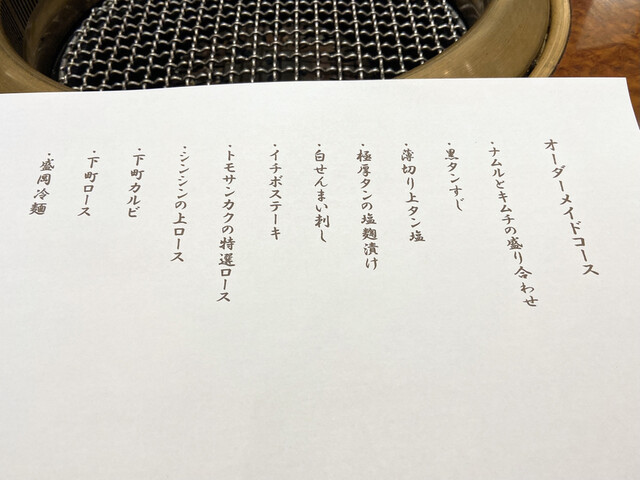 オーダーメイドコース
・ナムルとキムチの盛り合わせ
・黒タンすじ
・薄切り上タン塩
・極厚タンの塩麹漬け
・白せんまい刺し
・イチボステーキ
・トモサンカクの特選ロース
・シンシンの上ロース
・下町カルビ
・下町ロース
・盛岡冷麺